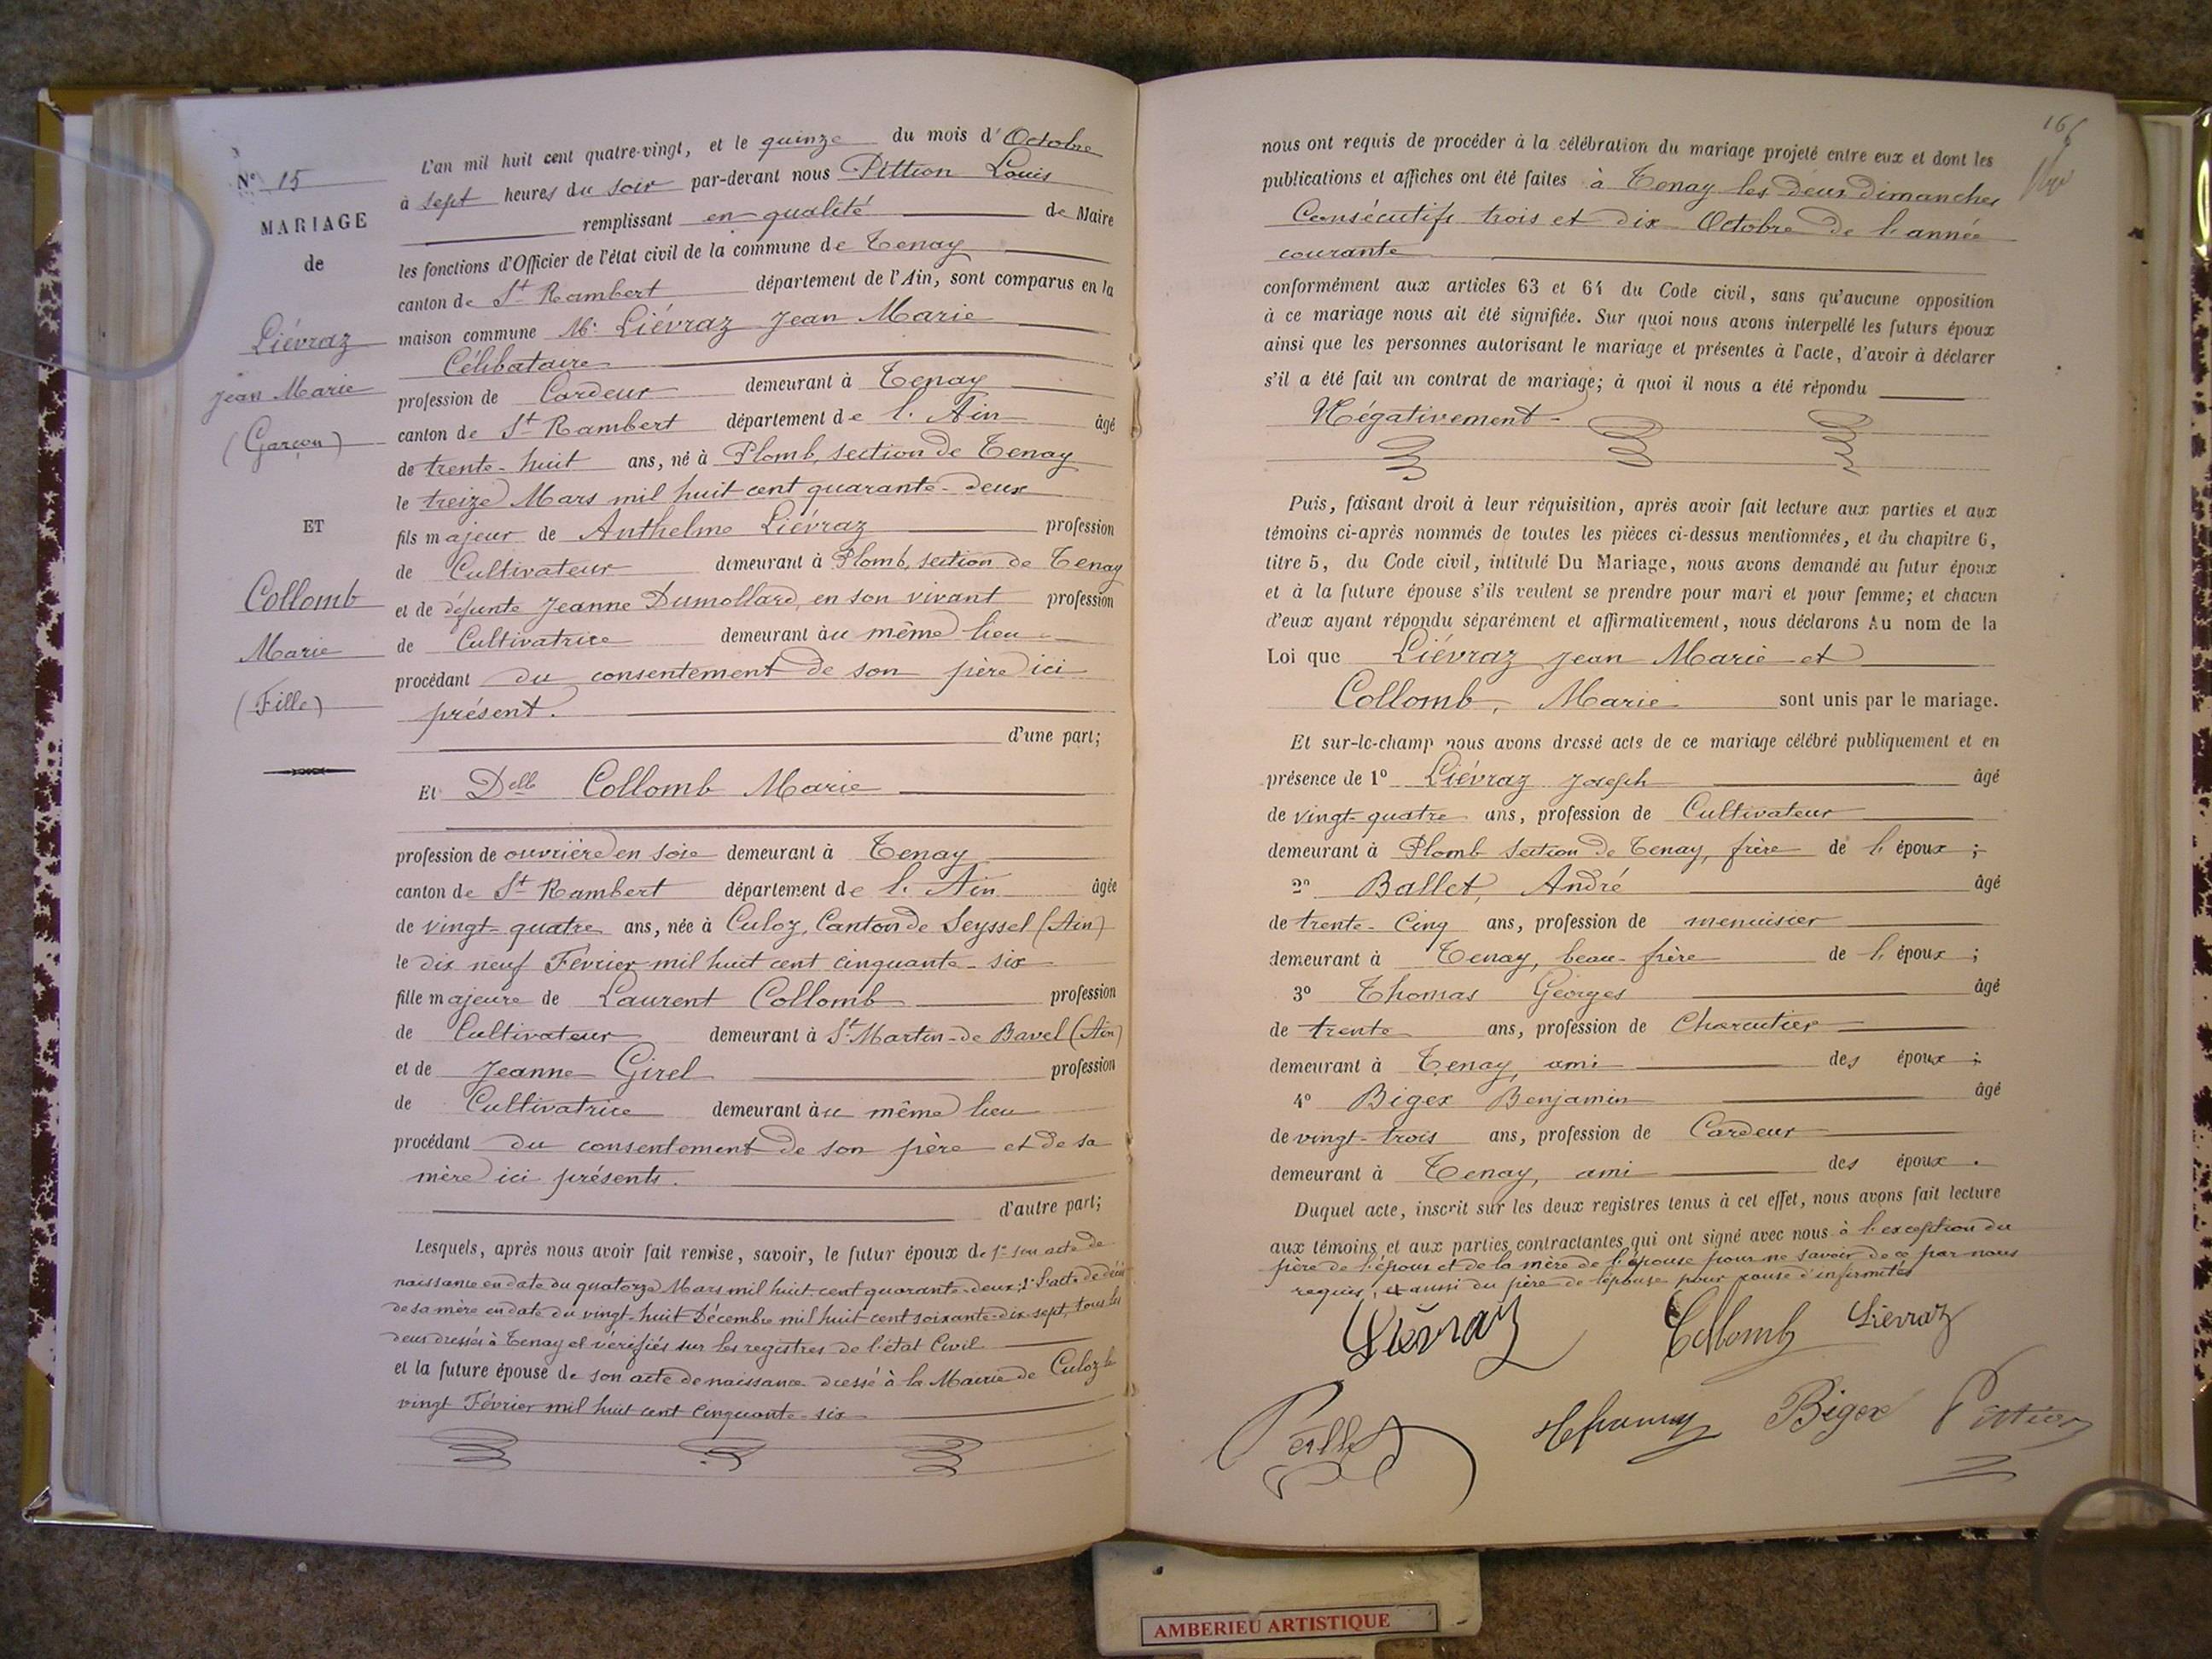 N° 15
MARIAGE
de
Liévraz
Jean Marie
(Garçon)
ET
Collomb
Marie
(Fille)
L'an mil huit cent quatre-vingt, et le quinze du mois d'Octobre
à sept heures du soir par-devant nous Pittion Louis
remplissant en qualité de Maire
les fonctions d'Officier de l'état civil de la commune de Tenay
canton de St Rambert département de l'Ain, sont comparus en la
maison commune Mr Liévraz Jean Marie
Célibataire
profession de Cardeur demeurant à Tenay
canton de St Rambert département de l'Ain âgé
de trente-huit ans, né à Plomb, section de Tenay
le treize Mars mil huit cent quarante-deux
fils majeur de Anthelme Liévraz profession
de Cultivateur demeurant à Plomb, section de Tenay
et de défunte Jeanne Dumollard, en son vivant profession
de Cultivatrice demeurant au même lieu
procédant du consentement de son père ici
présent.
d'une part;
Et Delle Collomb Marie
profession de ouvrière en soie demeurant à Tenay
canton de St Rambert département de l'Ain âgée
de vingt-quatre ans, née à Culoz, Canton de Seyssel (Ain)
le dix neuf Février mil huit cent cinquante-six
fille majeure de Laurent Collomb profession
de Cultivateur demeurant à St Martin-de Bavel (Ain)
et de Jeanne Girel profession
de Cultivatrice demeurant au même lieu
procédant du consentement de son père et de sa
mère ici présents.
d'autre part;
Lesquels, après nous avoir fait remise, savoir, le futur époux de 1° son acte de
naissance en date du quatorze Mars mil huit cent quarante-deux; 2° l'acte de décès
de sa mère en date du vingt-huit Décembre mil huit cent soixante-dix-sept, tous les
deux dressés à Tenay et vérifiés sur les registres de l'état Civil
et la future épouse de son acte de naissance dressé à la Mairie de Culoz le
vingt Février mil huit cent cinquante-six
16
nous ont requis de procéder à la célébration du mariage projeté entre eux et dont les
publications et affiches ont été faites à Tenay les deux dimanches
Consécutifs trois et dix Octobre de l'année
courante
conformément aux articles 63 et 64 du Code civil, sans qu'aucune opposition
à ce mariage nous ait été signifiée. Sur quoi nous avons interpellé les futurs époux
ainsi que les personnes autorisant le mariage et présentes à l'acte, d'avoir à déclarer
s'il a été fait un contrat de mariage; à quoi il nous a été répondu
Négativement
Puis, faisant droit à leur réquisition, après avoir fait lecture aux parties et aux
témoins ci-après nommés de toutes les pièces ci-dessus mentionnées, et du chapitre 6,
titre 5, du Code civil, intitulé Du Mariage, nous avons demandé au futur époux
et à la future épouse s'ils veulent se prendre pour mari et pour femme; et chacun
d'eux ayant répondu séparément et affirmativement, nous déclarons Au nom de la
Loi que Liévraz Jean Marie et
Collomb, Marie sont unis par le mariage.
Et sur-le-champ nous avons dressé acte de ce mariage célébré publiquement et en
présence de 1° Liévraz Joseph âgé
de vingt-quatre ans, profession de Cultivateur
demeurant à Plomb section de Tenay, frère de l'époux ;
2° Ballet, André âgé
de trente-Cinq ans, profession de menuisier
demeurant à Tenay, beau-frère de l'époux ;
3° Thomas Georges âgé
de trente ans, profession de Charcutier
demeurant à Tenay, ami des époux ;
4° Bigex Benjamin âgé
de vingt-trois ans, profession de Cardeur
demeurant à Tenay, ami des époux .
Duquel acte, inscrit sur les deux registres tenus à cet effet, nous avons fait lecture
aux témoins et aux parties contractantes qui ont signé avec nous à l'exception du
père de l'époux et de la mère de l'épouse pour ne savoir de ce par nous
requis, et aussi du père de l'épouse pour cause d'infirmités
Liévraz Collomb Liévraz
Bigex Pittion
AMBERIEU ARTISTIQUE